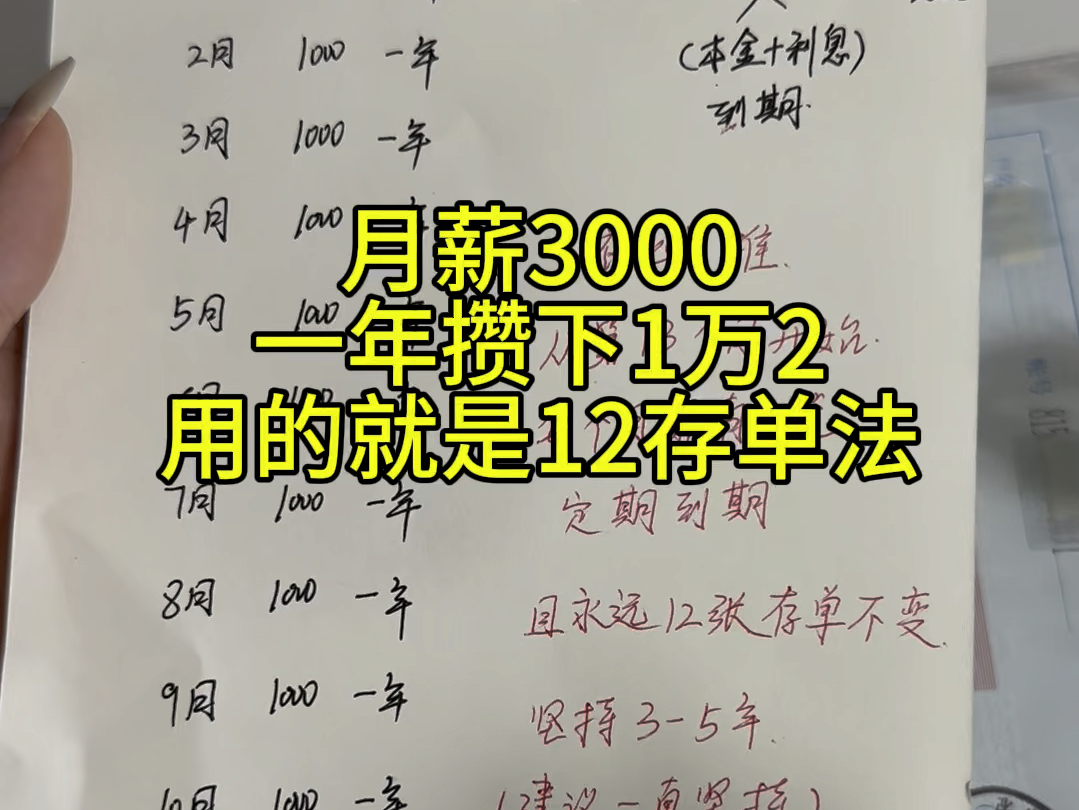 2月 1000 一年
(本金+利息)
到期.
3月 1000 一年
4月 1000
准.
月薪3000
5月 1000
一年攒下1万2
用的就是12存单法
7月 1000 一年
定期到期
8月 1000 一年
且永远12张存单不变.
9月 1000 一年
坚持3-5年.
10月 1000 一年
(建议一直坚持)